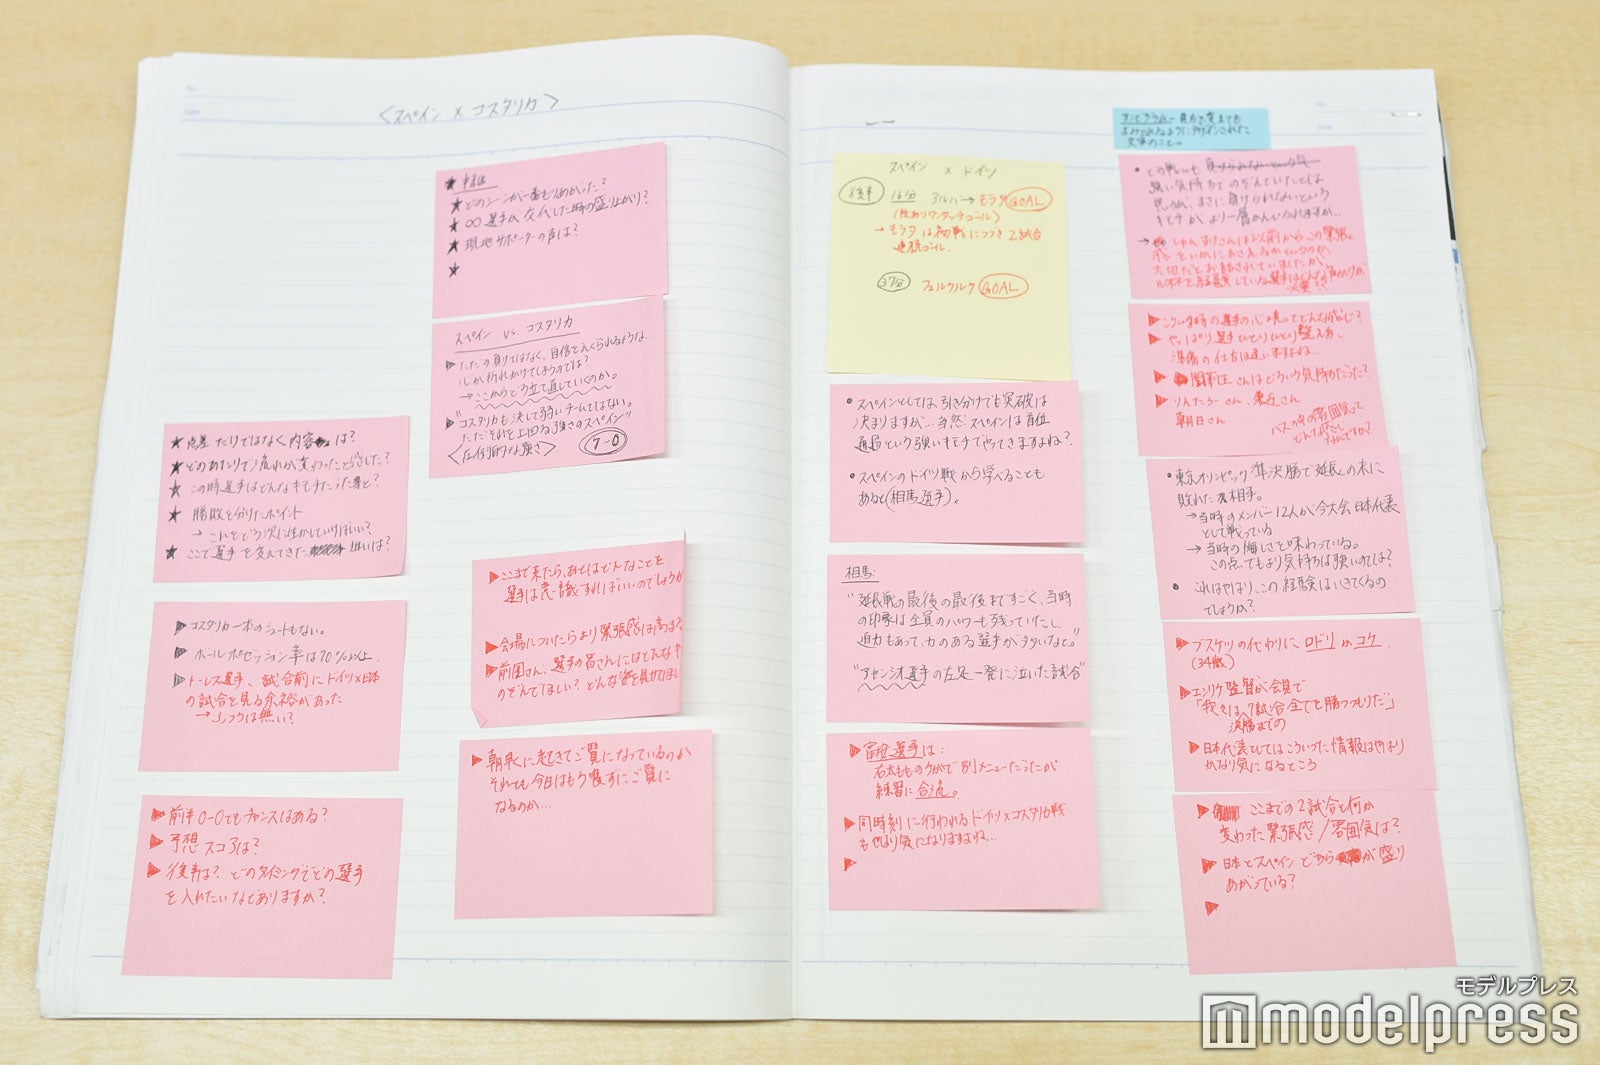 <スペイン × コスタリカ>
★ どのシーンが一番もりあがった?
★ ○○選手が交代した時の盛り上がり?
★ 現地サポーターの声は?
★
スペイン vs コスタリカ
▶ ただの負けではなく、自信をえぐられるような…
心が折れかけてしまうのでは?
→ここからどう立て直していくのか。
▶ "コスタリカも決して弱いチームではない。
ただそれを上回る強さのスペイン"
<圧倒的な強さ> 7-0
★ 点差だけではなく内容は?
★ どのあたりで流れが変わったと感じた?
★ この時選手はどんなキモチだったと?
★ 勝敗を分けたポイント
→ これをどう次に生かしていけばいい?
★ ここで選手を変えてきた 狙いは?
▶ コスタリカ一本のシュートもない。
▶ ボールポゼッション率は70%以上
▶ トーレス選手、試合前にドイツ×日本
の試合を見る余裕があった
→ ふつうは無い?
▶ 前半0-0でもチャンスはある?
▶ 予想スコアは?
▶ 後半は?どのタイミングでどの選手
を入れたいなどありますか?
▶ ここまで来たら、あとはどんなことを
選手は意識すればいいのでしょうか
▶ 会場についたらより緊張感は高まる
▶ 前園さん、選手の皆さんにはどんなキ
のぞんでほしい?どんな姿を見せてほし
▶ 朝早くに起きてご覧になっているのか
それでも今日はもう寝ずにご覧に
なるのか…
スペイン × ドイツ
後半 16分 アルバ → モラタ GOAL
→ モラタは初戦につづき2試合
連続ゴール。
37分 フェルクルク GOAL
• スペインとしては、引き分けでも突破は
決まりますが… 当然スペインは首位
通過という強いキモチでやってきますよね?
• スペインのドイツ戦から学べることも
あると(相馬選手)。
相馬:
"延長戦の最後の最後まですごく、当時
の印象は全員のパワーも残っていたし、
迫力もあって、力のある選手が多いなと。"
"アセンシオ選手の左足一発に泣いた試合"
▶ 冨安選手は:
右太もものケガで別メニューだったが
練習に合流。
▶ 同時刻に行われるドイツ×コスタリカ戦
もやはり気になりますよね…
▶
文字のこと。
• どの戦いも
強い気持ちでのぞんでいたとは
思うが、まさに負けられないという
キモチがより一層かんじられますが…
▶ こういう時の選手の心境ってどんな感じ?
▶ やっぱり選手ひとりひとり整え方、
準備の仕方は違いますよね…
▶ さんはどういう気持ちだった?
▶ りんたろーさん、
朝日さん
• 東京オリンピック準決勝で延長の末に
敗れた相手。
→ 当時のメンバー12人が今大会日本代表
として戦っている
→ 当時の悔しさを味わっている。
この点でもより気持ちは強いのでは?
• これはやはり、この経験はいきてくるの
でしょうか?
▶ ブスケツの代わりにロドリかコケ
(34歳)
▶ エンリケ監督が会見で
「我々は、7試合全てを勝つつもりだ」
決勝までの
▶ 日本代表としてはこういった情報はやはり
かなり気になるところ
▶ ここまでの2試合と何か
変わった緊張感/雰囲気は?
▶ 日本とスペインどちらが盛り
あがっている?
▶
モデルプレス
modelpress